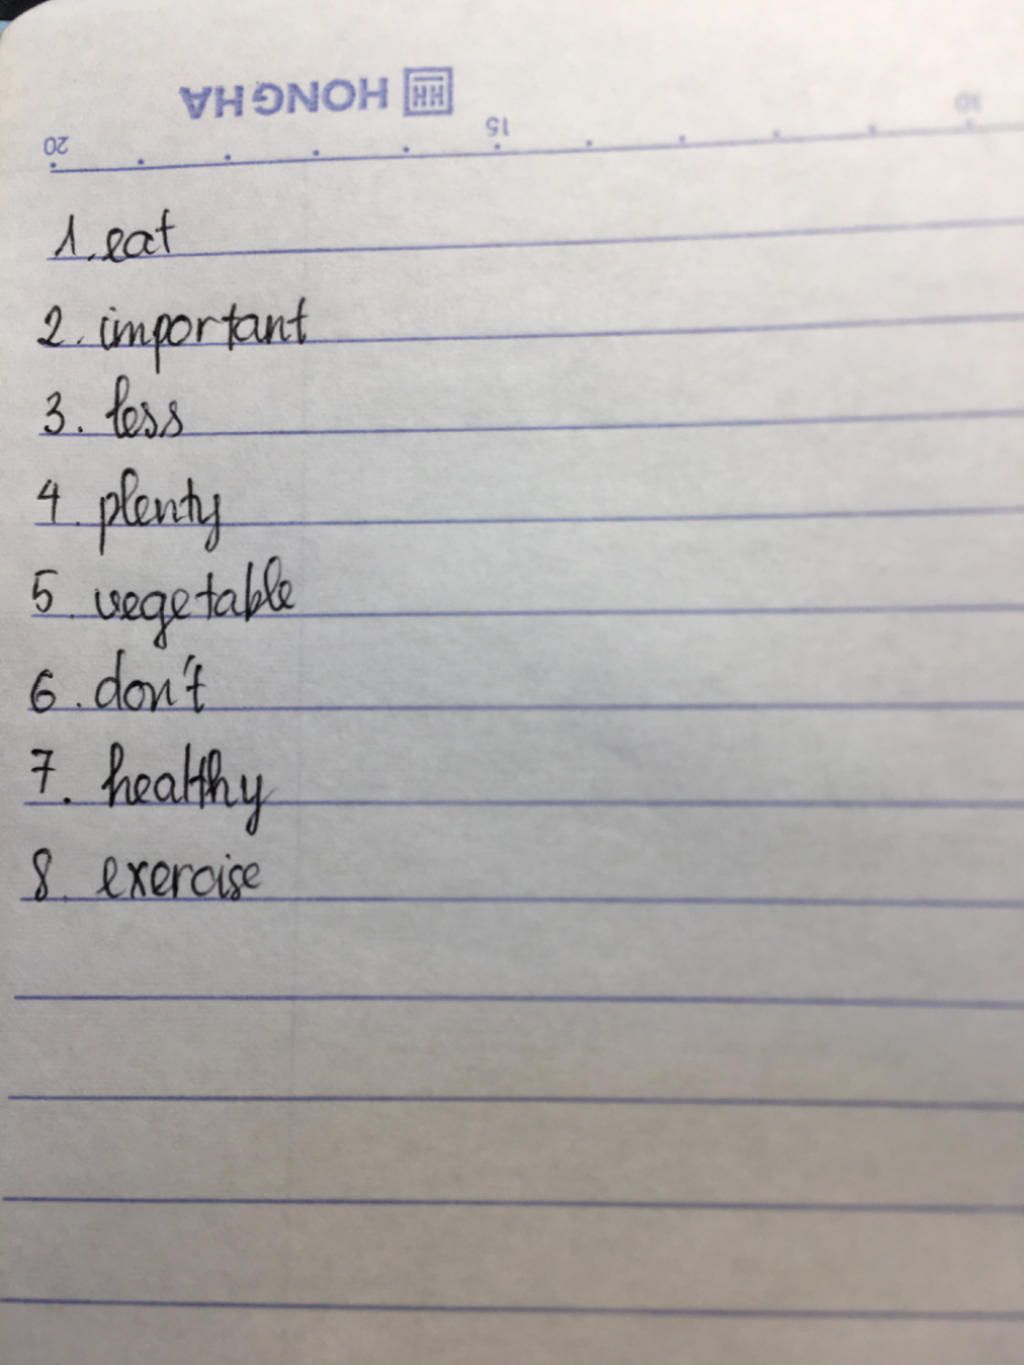 HONG HA
20 15 10
1. eat
2. important
3. less
4. plenty
5 vegetable
6. don't
7. healthy
8. exercise